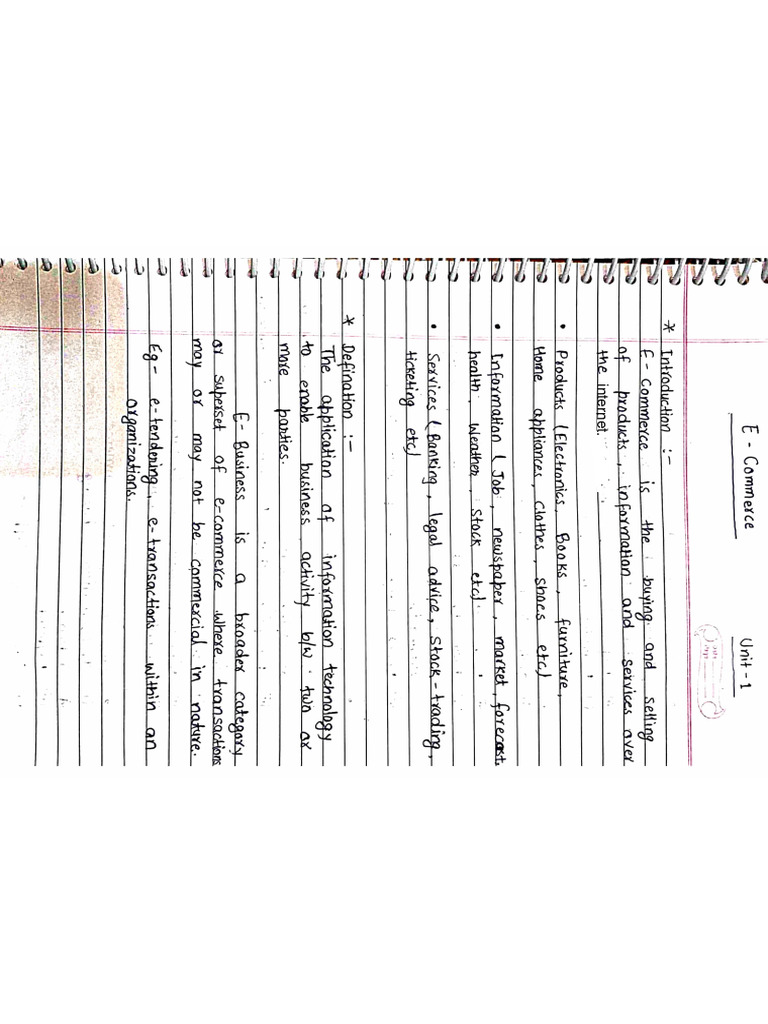 E - Commerce Unit - 1
* Introduction :-
E - Commerce is the buying and selling
of products, information and services over
the internet.
• Products (Electronics, Books, furniture,
Home appliances, Clothes, Shoes etc)
• Information (Job, newspaper, market, forecast,
health, Weather, Stock etc)
• Services (Banking, legal advice, Stock-trading,
ticketing etc)
* Defination :-
The application of information technology
to enable business activity b/w two or
more parties.
E- Business is a broader category
or superset of e-commerce where transactions
may or may not be commercial in nature.
Eg- e-tendering, e-transactions within an
organizations.